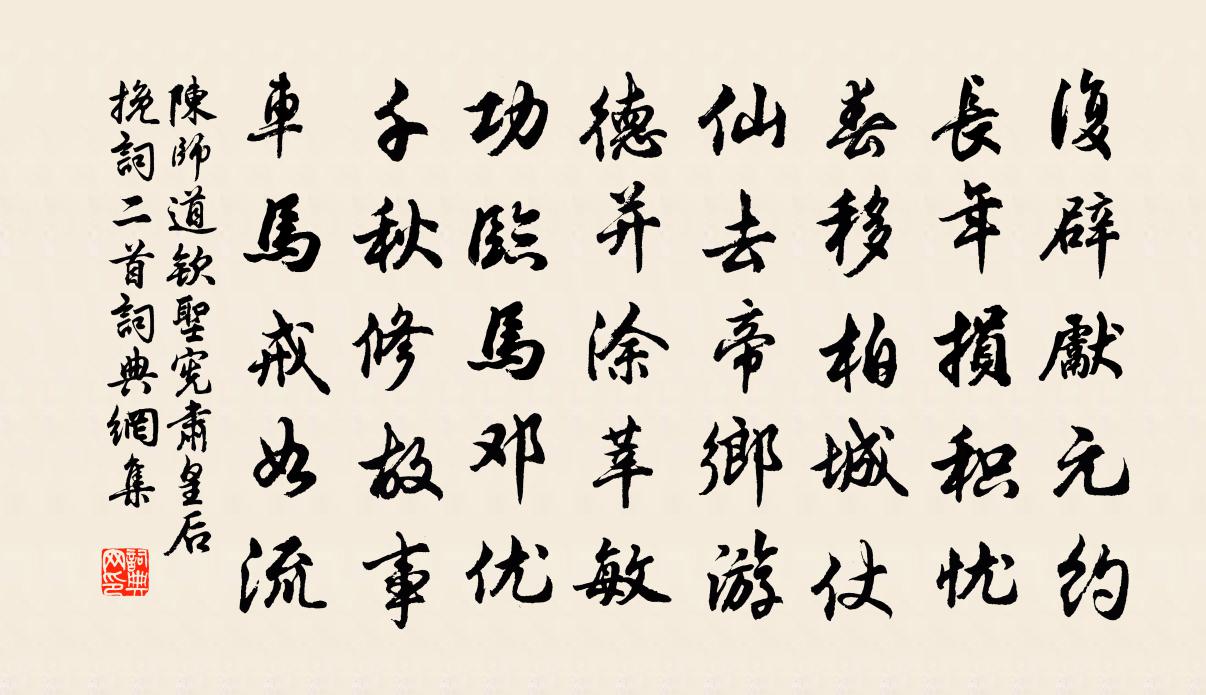 復辟獻元約
長年損积忧
春移柏城仗
仙去帝鄉游
德并涂莘敏
功臨馬邓优
千秋修故事
車馬戒如流
陳師道欽聖宪肅皇后
挽詞二首詞典網集
詞典
网印